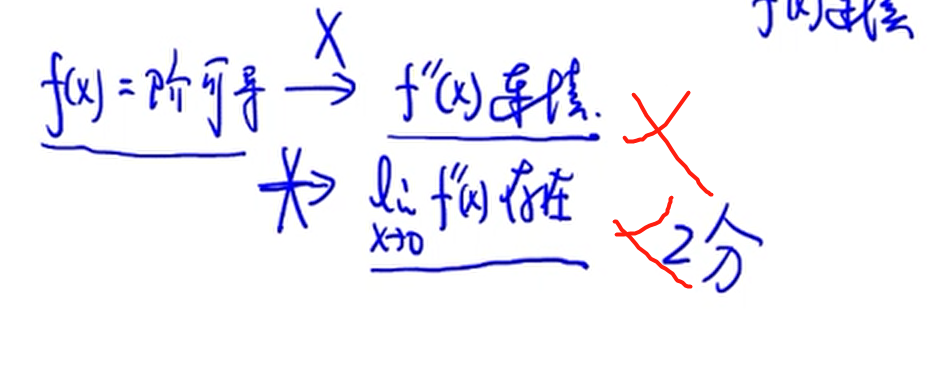 f(x)连续
f(x)二阶可导 → f''(x)连续.
→ lim x→0 f''(x)存在
2分